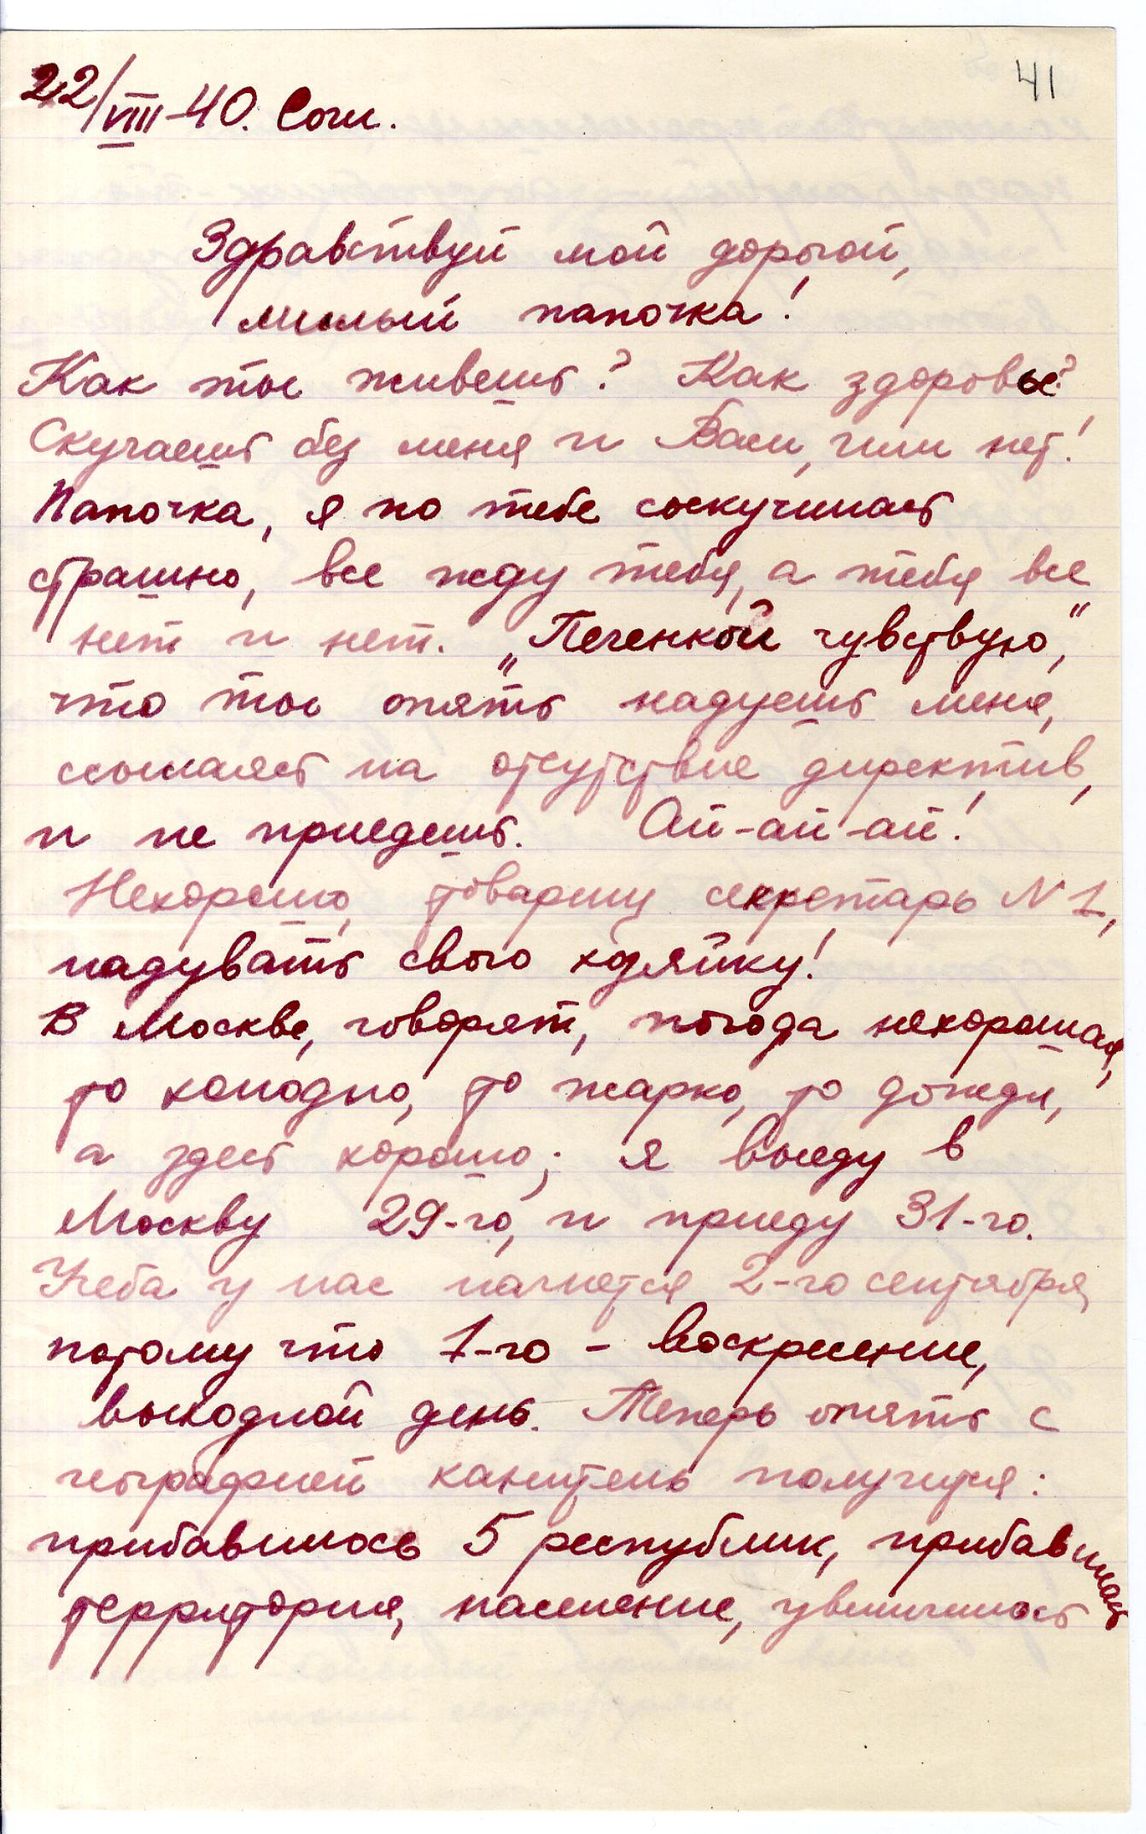 41
22/VIII-40. Сочи.
Здравствуй мой дорогой,
милый папочка!
Как ты живешь? Как здоровье?
Скучаешь без меня и Васи, или нет!
Папочка, я по тебе соскучилась
страшно, все жду тебя, а тебя все
нет и нет. „Печенкой чувствую,"
что ты опять надуешь меня,
сошлясь на отсутствие директив,
и не приедешь. Ай-ай-ай!
Нехорошо, товарищ секретарь N 1,
надувать свою хозяйку!
В Москве, говорят, погода нехорошая,
то холодно, то жарко, то дожди,
а здесь хорошо; я выеду в
Москву 29-го, и приеду 31-го.
Учеба у нас начнется 2-го сентября,
потому что 1-го - воскресение,
выходной день. Теперь опять с
географией канитель получится:
прибавилось 5 республик, прибавилась
территория, население, увеличилось